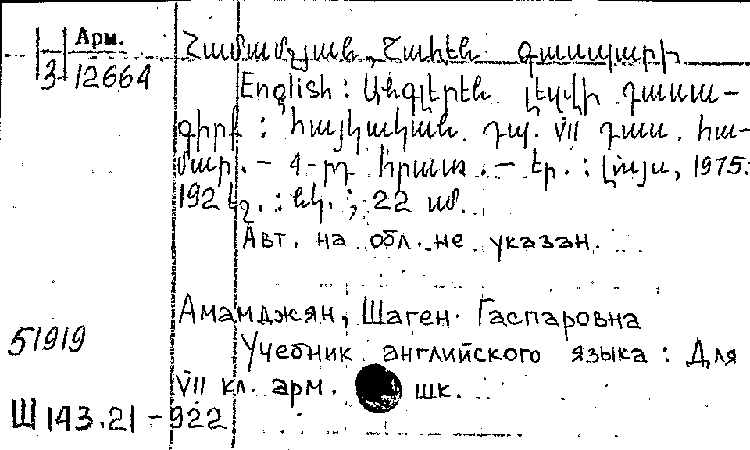 Арм.
3 12664
Համամչյան, Շահեն Գասպարի
English : Անգլերեն լեզվի դասա-
գիրք : հայկական դպ. VII դաս. հա-
մար. – 4-րդ հրատ. – Եր. : Լույս, 1975.
192 էջ. : նկ. ; 22 սմ.
Авт. на обл. не указан.
Амамджян, Шаген Гаспаровна
51919
Учебник английского языка : Для
VII кл. арм. шк.
Ш143.21-922